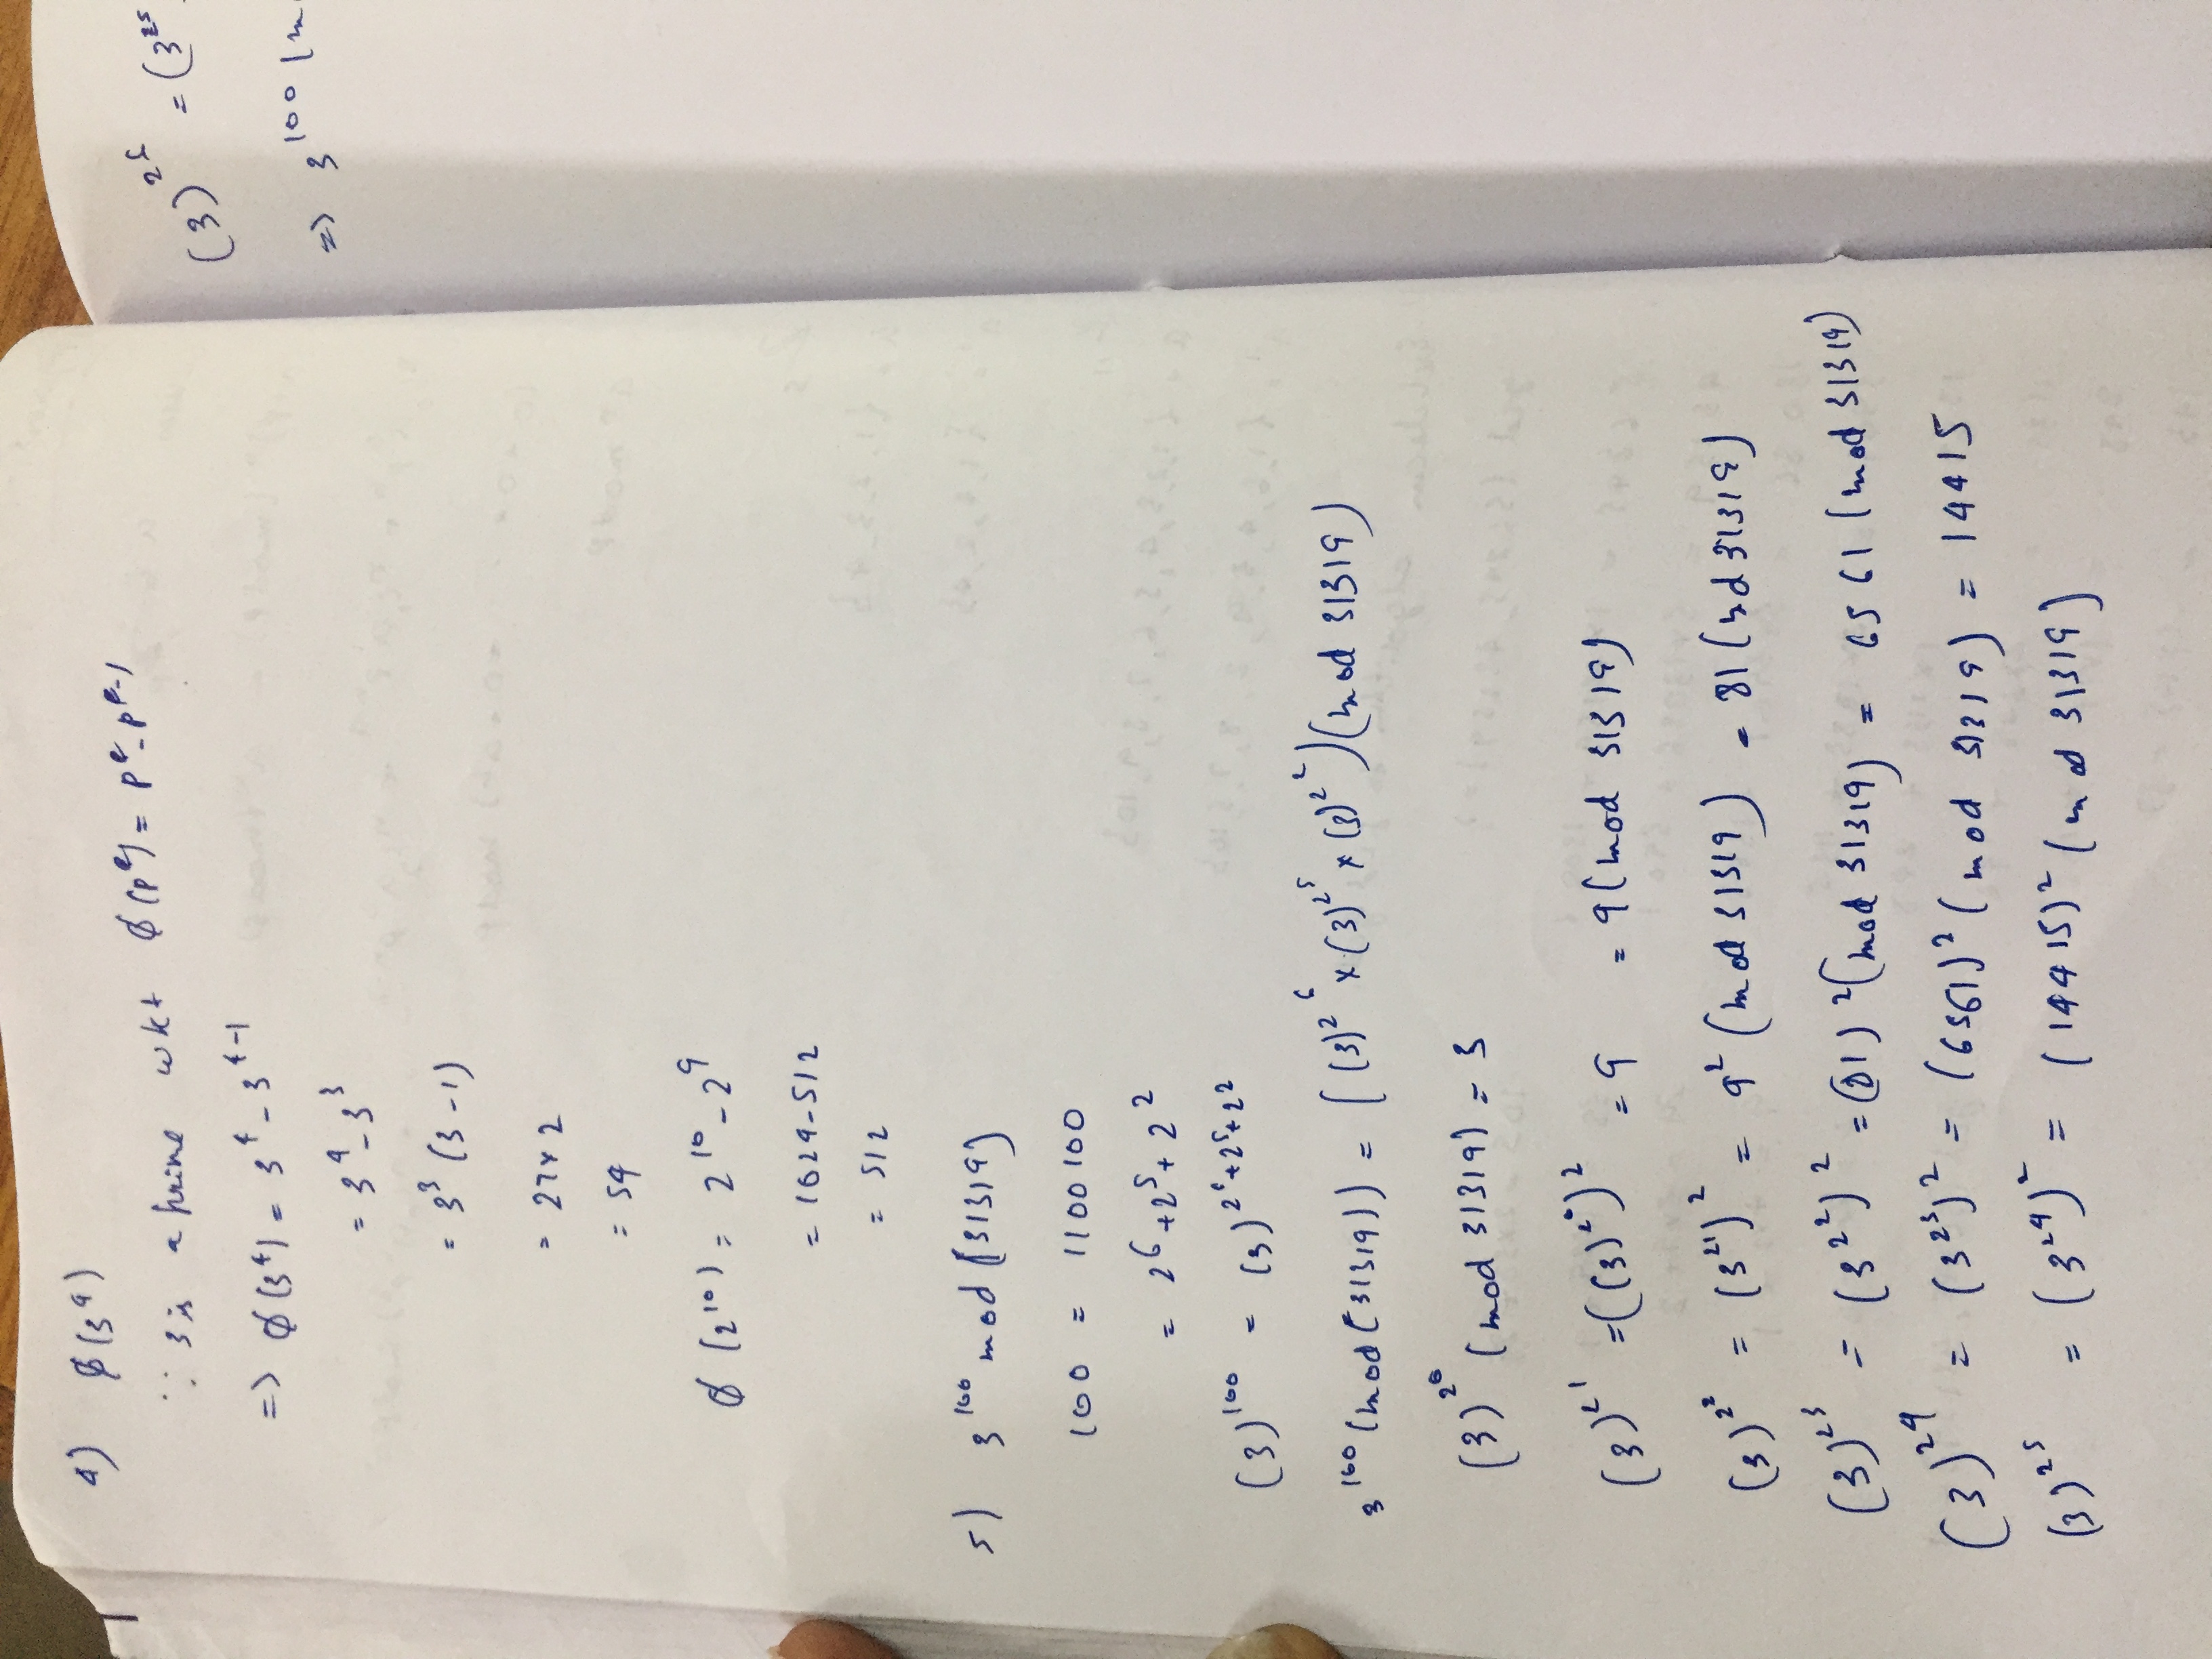 4) ϕ(3⁴)
∵ 3 is a prime wkt ϕ(pᵉ) = pᵉ - pᵉ⁻¹
=> ϕ(3⁴) = 3⁴ - 3⁴⁻¹
= 3⁴ - 3³
= 3³ (3 - 1)
= 27 × 2
= 54
ϕ (2¹⁰) = 2¹⁰ - 2⁹
= 1024 - 512
= 512
5) 3¹⁰⁰ mod (31319)
100 = 1100100
= 2⁶ + 2⁵ + 2²
(3)¹⁰⁰ = (3)^2⁶+2⁵+2²
3¹⁰⁰ (mod (31319)) = ((3)^2⁶ × (3)^2⁵ × (3)^2²) (mod 31319)
(3)^2⁰ (mod 31319) = 3
(3)^2¹ = ((3)^2⁰)² = 9 = 9 (mod 31319)
(3)^2² = (3^2¹)² = 9² (mod 31319) = 81 (md 31319)
(3)^2³ = (3^2²)² = (81)² (mod 31319) = 6561 (mod 31319)
(3)^2⁴ = (3^2³)² = (6561)² (mod 31319) = 14415
(3)^2⁵ = (3^2⁴)² = (14415)² (mod 31319)
(3)^2⁶ = (3^2⁵
=> 3¹⁰⁰ (m